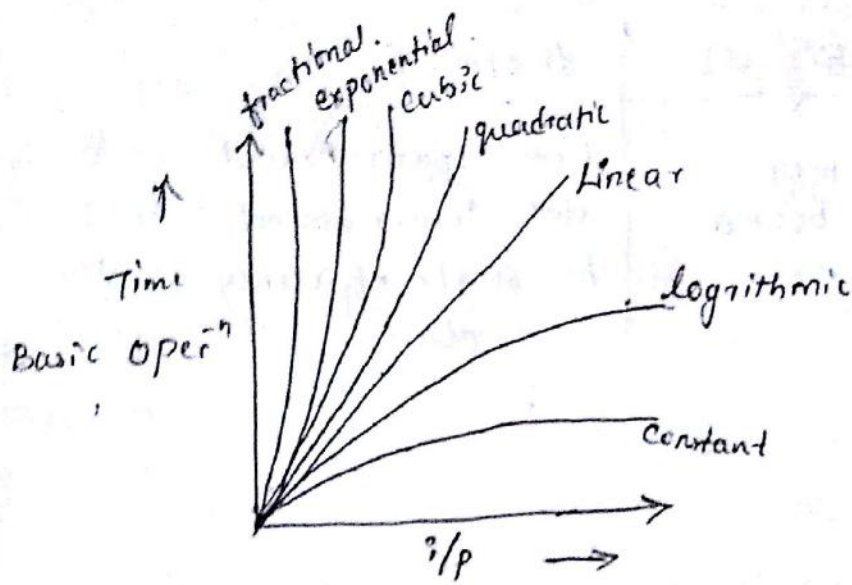 fractional.
exponential.
cubic
quadratic
Linear
logrithmic
constant
Time
Basic Operⁿ
i/p